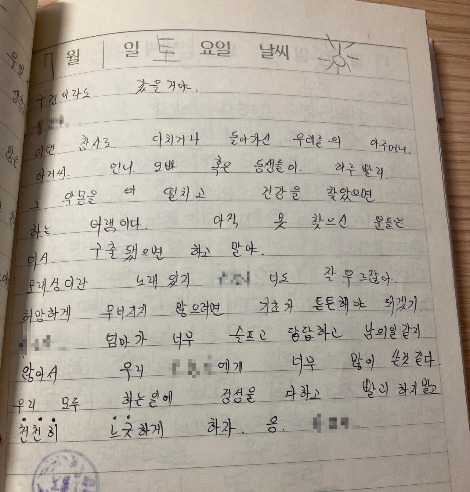 7월 일 토 요일 날씨
누군이라도 갔을거야.
이번 참사로 다치거나 돌아가신 우리들의 아주머니.
아저씨. 언니 오빠 혹은 동생들이. 하루 빨리
그 악몽을 떨치고 건강을 찾았으면
하는 바램이다. 아직 못 찾으신 분들은
어서 구출 됐으면 하고 말야.
모래성이란 노래 있지 너도 잘 부르잖아.
허망하게 무너지지 않으려면 기초가 튼튼해야 되겠기
엄마가 너무 슬프고 답답하고 남의일 같지
않아서 우리 에게 너무 많이 쓴것 같다.
우리 모두 하는일에 정성을 다하고 빨리 하지말고
천천히 느긋하게 하자. 응.